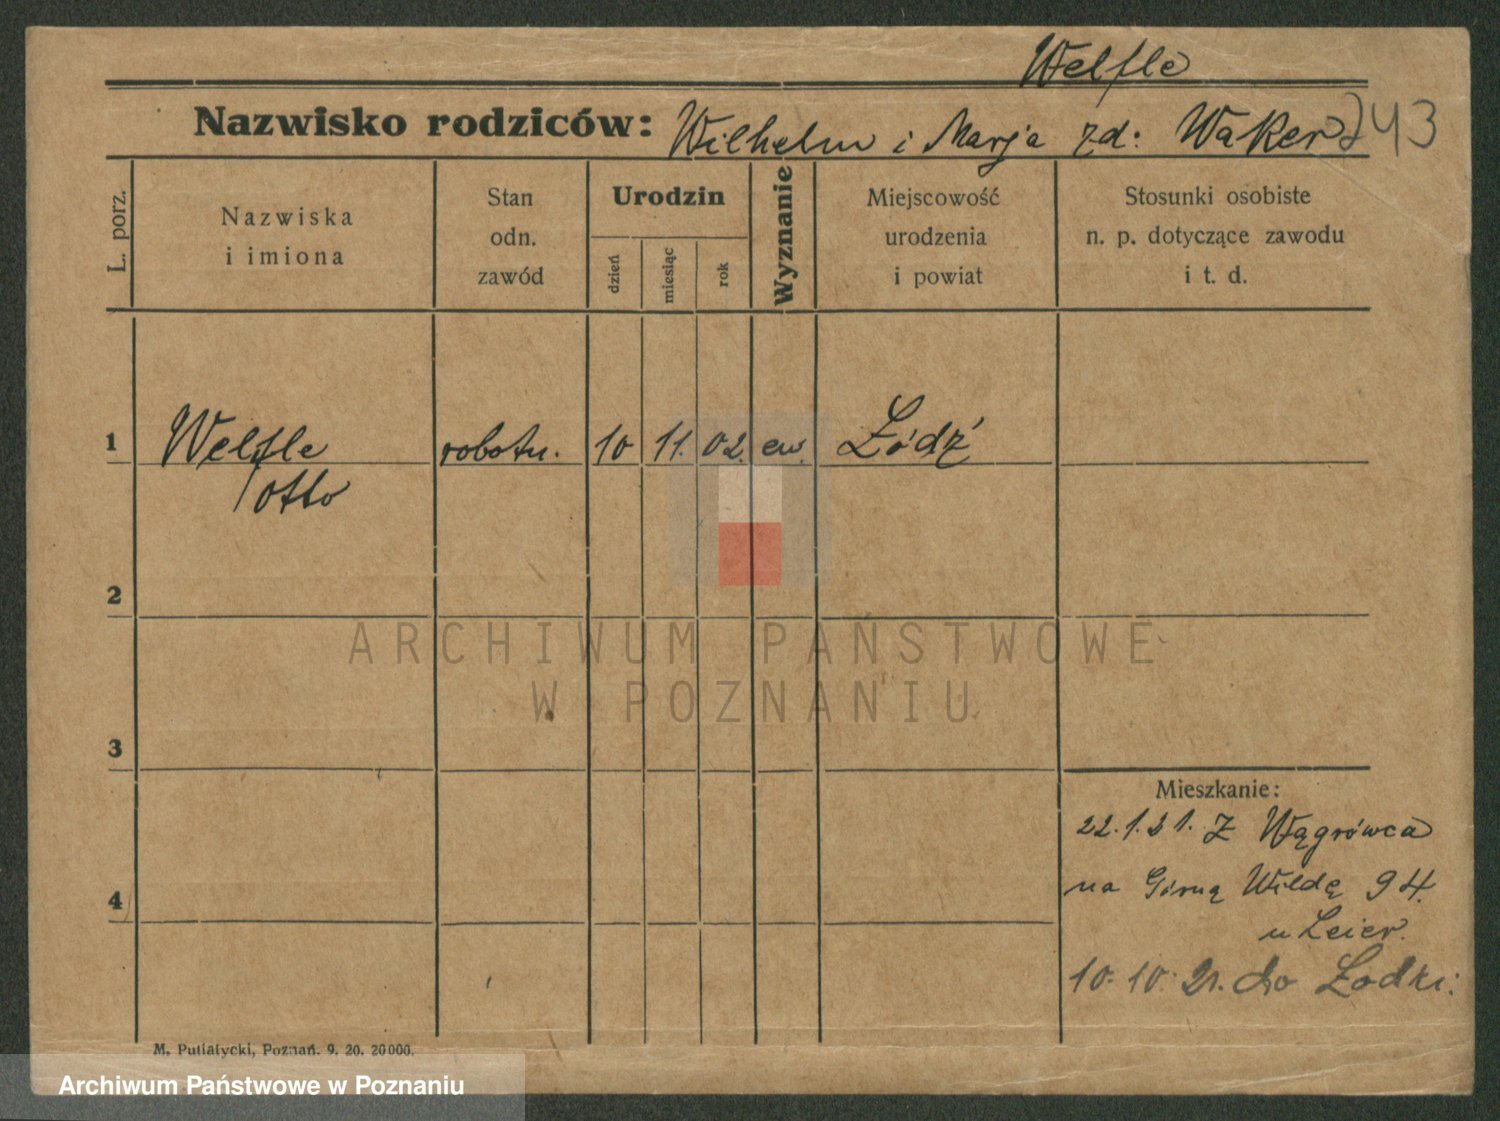 Welfle
Nazwisko rodziców: Wilhelm i Marja zd: Waker
743
L. porz.
Nazwiska
i imiona
Stan
odn.
zawód
Urodzin
dzień
miesiąc
rok
Wyznanie
Miejscowość
urodzenia
i powiat
Stosunki osobiste
n. p. dotyczące zawodu
i t. d.
1 Welfle robotn. 10 11. 02. ew. Łódź
Otto
2
ARCHIWUM PAŃSTWOWE
W POZNANIU
3
Mieszkanie:
22.1.21. z Wągrówca
4 na Górną Wildę 94.
u Leier.
10. 10. 21. do
M. Putiatycki, Poznań. 9. 20. 20000.
Archiwum Państwowe w Poznaniu